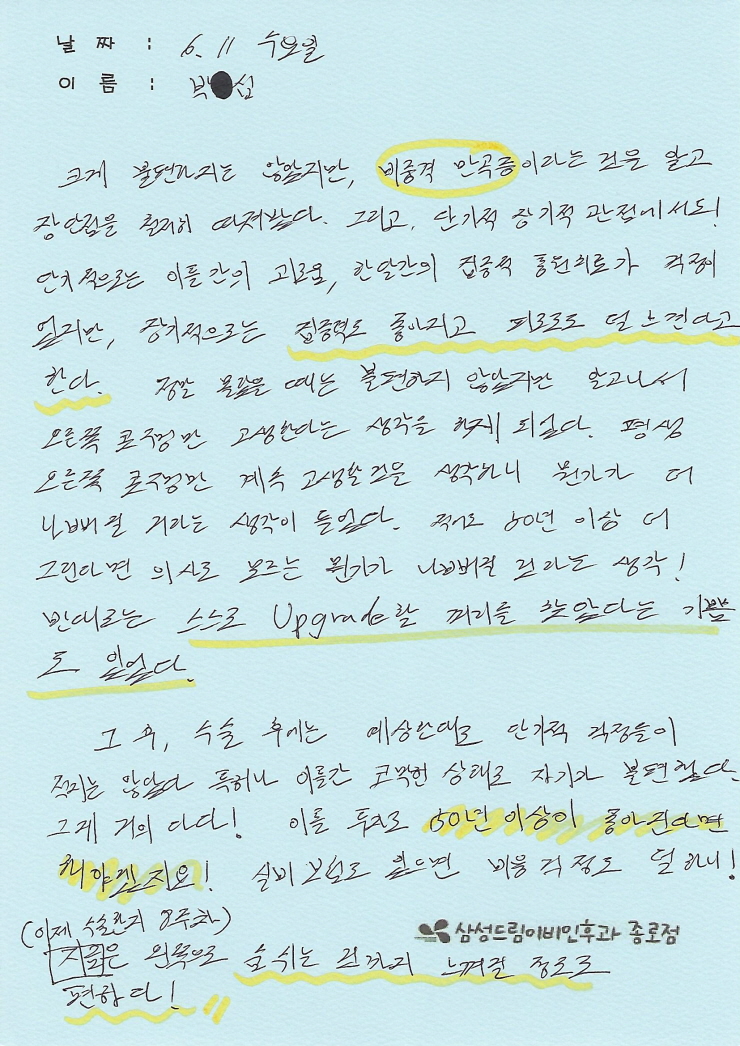 날 짜 : 6. 11 수요일
이 름 : 박 섭
크게 불편하지는 않았지만, 비중격 만곡증이라는 것을 알고
장단점을 철저히 따져봤다. 그리고, 단기적 장기적 관점에서도!
단기적으로는 이틀간의 괴로움, 한달간의 집중적 통원치료가 걱정이
었지만, 장기적으로는 집중력도 좋아지고 피로로도 덜 느낀다고
한다. 정말 몰랐을 때는 불편하지 않았지만 알고나서
오른쪽 콧구멍만 고생한다는 생각을 하게 되었다. 평생
오른쪽 콧구멍만 계속 고생할 것을 생각하니 뭔가가 더
나빠질 거라는 생각이 들었다. 적어도 60년 이상 더
그런다면 의사로 모르는 뭔가가 나빠질 거라는 생각!
반대로는 스스로 Upgrade할 꺼리를 찾았다는 기쁨
도 있었다.
그 후, 수술 후에는 예상한대로 단기적 걱정들이
적지는 않았다 특히나 이틀간 코막힌 상태로 자기가 불편했다.
그게 거의 다다! 이틀 투자로 60년 이상이 좋아진다면
해야겠지요! 실비 보험도 있으면 비용 걱정도 덜 하니!
(이제 수술한지 8주차)
지금은 왼쪽으로 숨 쉬는 것까지 느껴질 정도로
편하다!
삼성드림이비인후과 종로점